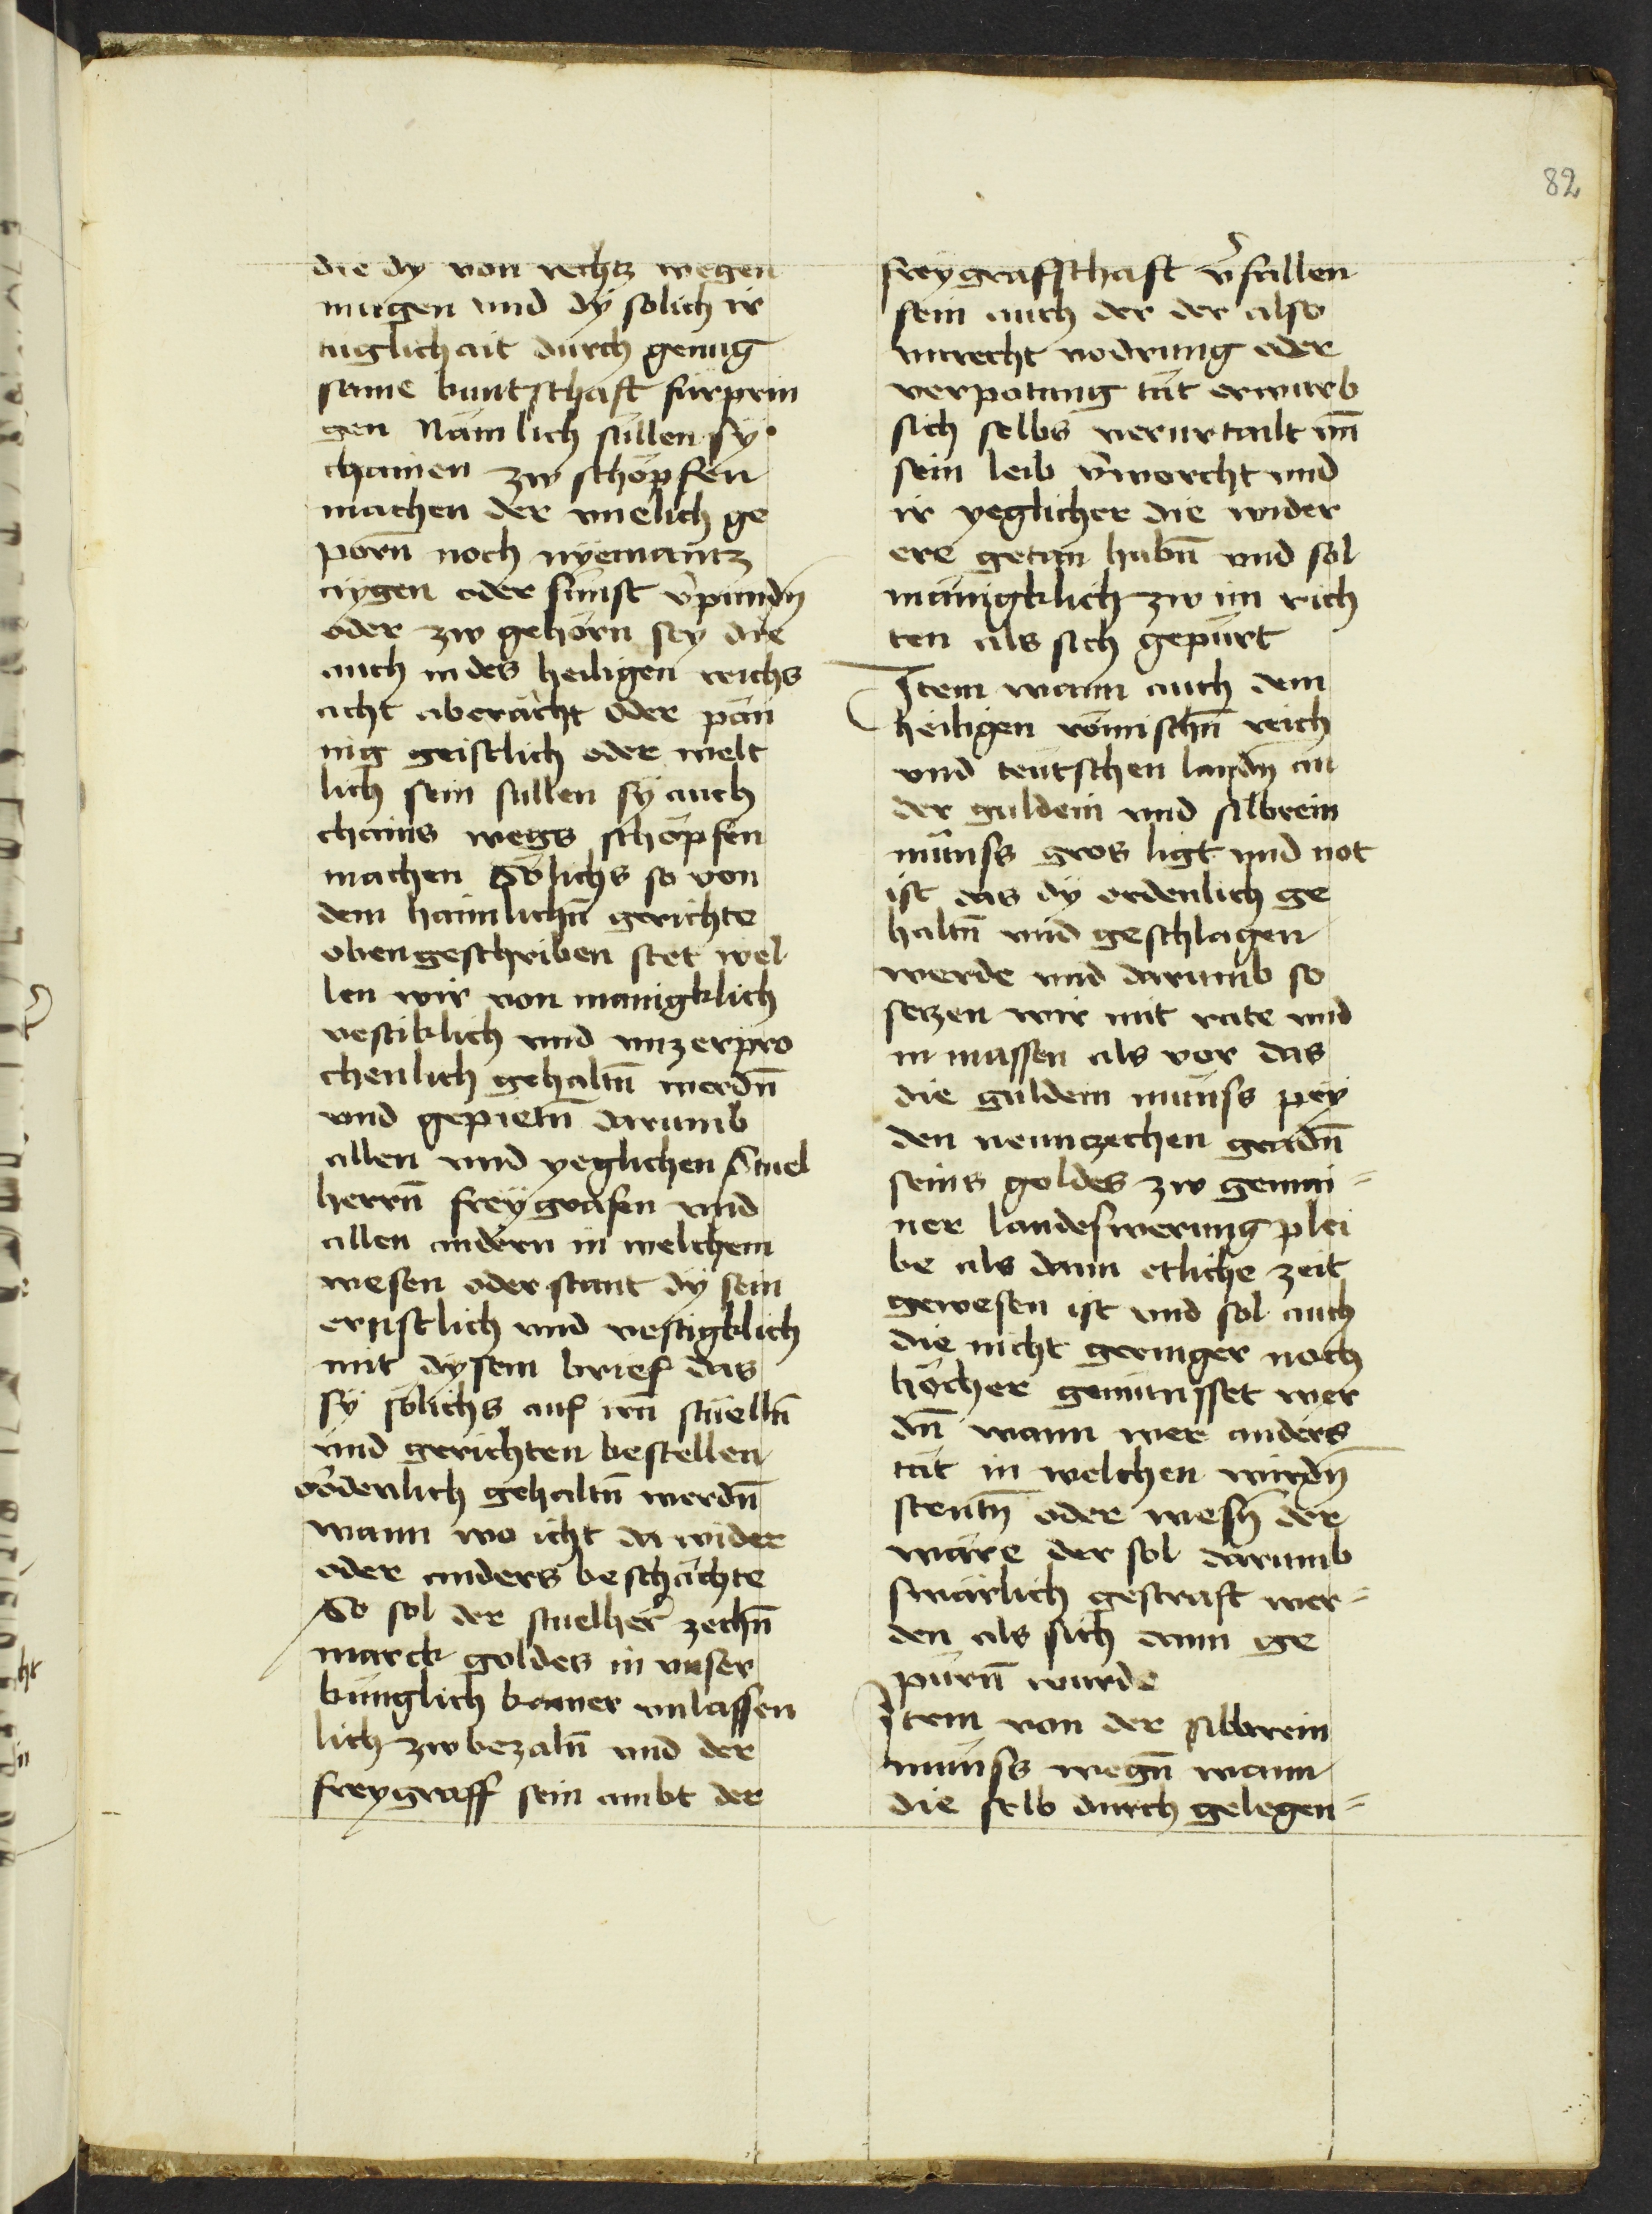 82
die dy von rechtz wegen
mugen und dÿ solich ir
tuglichait durch genug
same kuntschaft fürprin
gen Nämlich süllen sÿ
chainen zw schöpfen
machen der unelich ge
porn̄ noch nÿemantz
aÿgen oder sünst v̉pundn̄
oder zw gehörn seÿ die
auch in des heiligen reichs
acht aberächt oder pän
nig geistlich oder welt
lich sein sullen sÿ auch
chains wegs schöpfen
machen Sölichs so von
dem haimlichn̄ gerichte
oben geschriben stet wel
len wir von mänigklich
vestiklich und unzerpro
chenlich gehaltn̄ werdn̄
und gepietn̄ darumb
allen und yeglichen Stuel
herrn̄ freÿgrafen und
allen andern in welchem
wesen oder stant dÿ sein
ernstlich und vestigklich
mit dÿsem brief das
sÿ sölichs auf irn̄ stüelln̄
und gerichten bestellen
ordenlich gehaltn̄ werdn̄
wann wo icht da wider
oder anders beschächte
So sol der stuelher̉ zechn̄
marck goldes in unser
künglich kamer unlassen
lich zw bezaln̄ und der
freygraff sein ambt der
freÿgraffschaft v̉fallen
sein auch der der also
unrecht vodrung oder
verpotung tät erwurb
sich selbs verurtailt un̄
sein leib v̉worcht und
ir yeglicher die wider
ere getan habn̄ und sol
mänigklich zw im rich
ten als sich gepürt
Item wann auch dem
heiligen römischn̄ reich
und teutschen landn̄ an
der guldein und silbrein
münss gros ligt und not
ist das dÿ ordenlich ge
haltn̄ und geschlagen
werde und darumb so
setzen wir mit rate und
in massen als vor das
die guldein münss peÿ
den neuntzechen gradn̄
feins goldes zw gemai=
ner landeswerung plei
be als dann etliche zeit
gewesen ist und sol auch
die nicht geringer noch
höcher gemünsset wer
dn̄ wann wer anders
tät in welchen wirdn̄
stentn̄ oder wesn̄ der
wäre der sol darumb
swärlich gestraft wer=
den als sich dann ge
pürn̄ wurde
Item von der silbrein
münss wegn̄ wann
die selb durch gelegen=